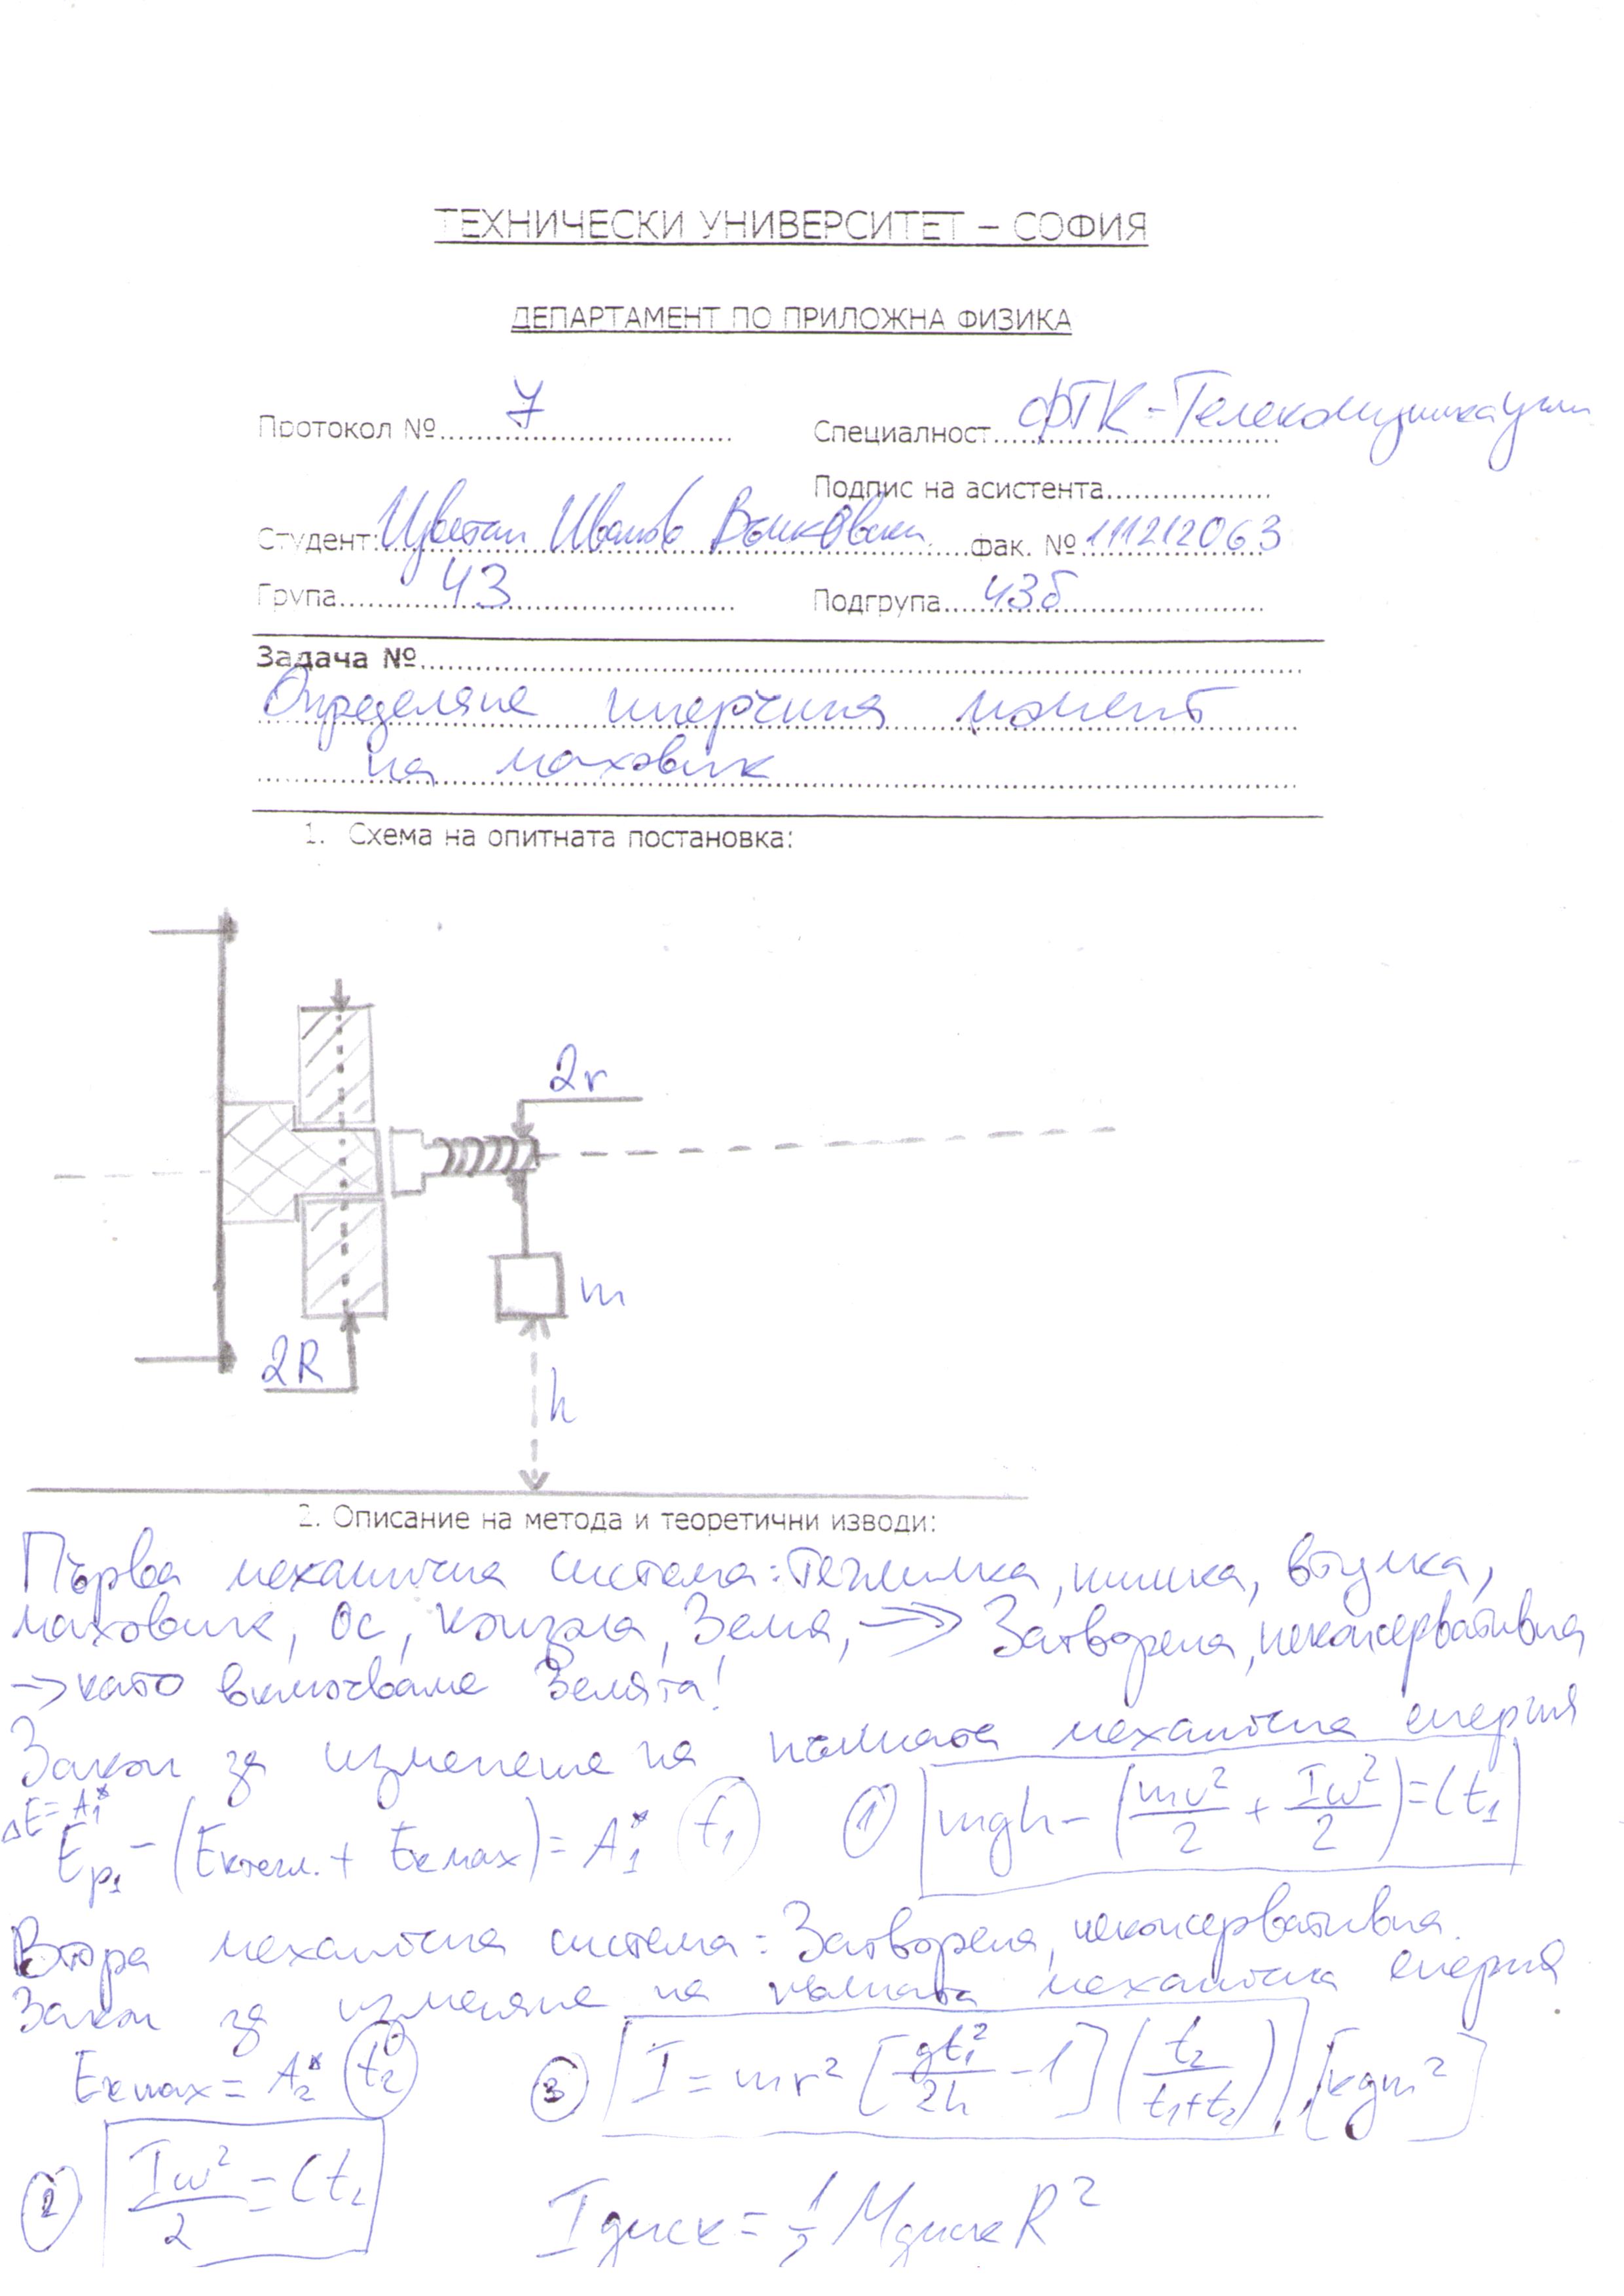 ТЕХНИЧЕСКИ УНИВЕРСИТЕТ – СОФИЯ
ДЕПАРТАМЕНТ ПО ПРИЛОЖНА ФИЗИКА
Протокол №.......7....... Специалност...ФТК - Телекомуникации
Подпис на асистента...................
Студент: Цветан Иванов фак. № 111212063
Група.......43....... Подгрупа...43б.......
Задача №.......
Определяне инерчния момент
на маховик
1. Схема на опитната постановка:
2r
m
2R
h
2. Описание на метода и теоретични изводи:
Първа механична система: Теглилка, нишка, втулка,
маховик, Ос, конзола, Земя, → Затворена, неконсервативна
→ като включваме Земята!
Закон за изменение на пълната механична енергия
ΔE = A₁*
Eр₁ - (Eктегл. + Eкмах) = A₁* (t₁) (1) mgh - (mv²/2 + Iω²/2) = Ct₁
Втора механична система: Затворена, неконсервативна.
Закон за изменяне на пълната механична енергия
Eкмах = A₂* (t₂) (3) I = mr² [gt₁²/2h - 1] (t₂/(t₁+t₂)), [kgm²]
(2) Iω²/2 = Ct₂
Iдиск = 1/2 Mдиск R²